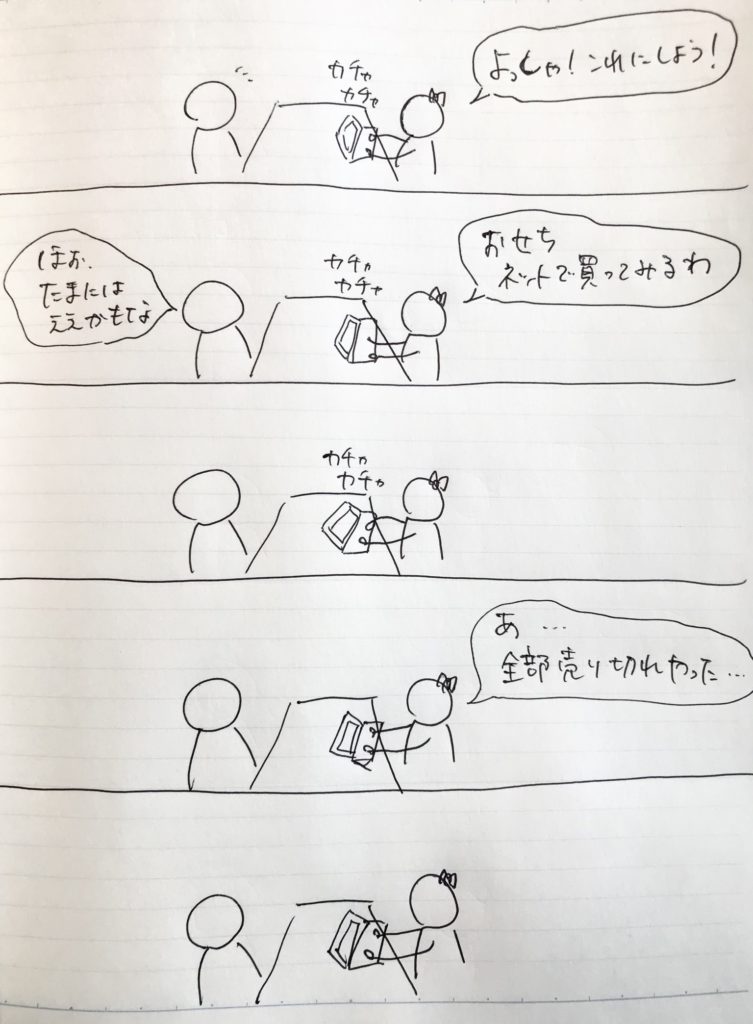 カチャ
カチャ
よっしゃ!これにしよう!
カチャ
カチャ
おせち
ネットで買ってみるわ
ほぉ、
たまには
ええかもな
カチャ
カチャ
あ…
全部売り切れやった…